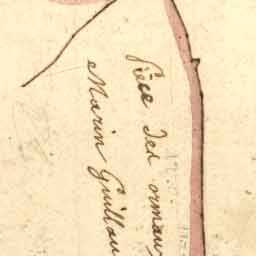 Pièce des ormaux
Marin Guillau